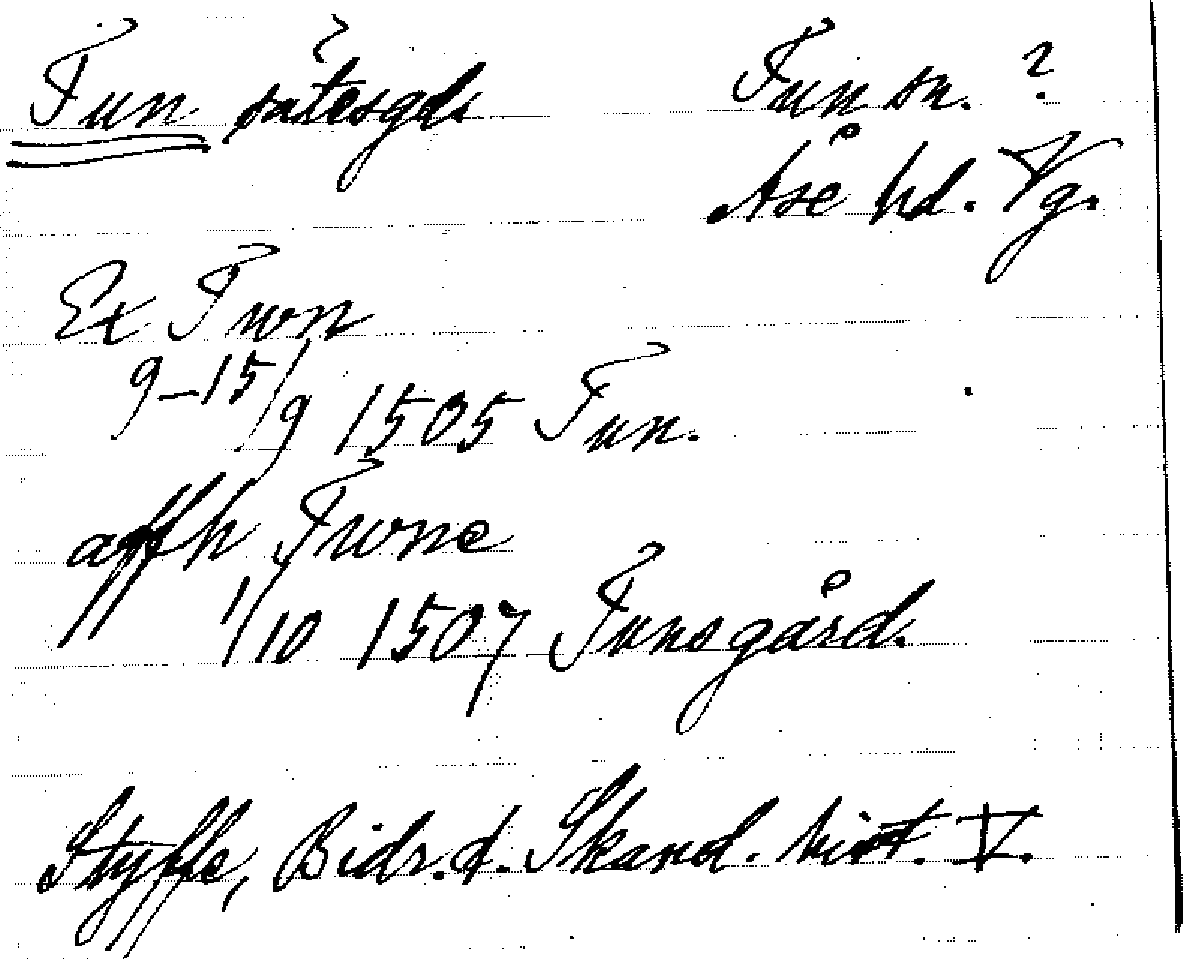 Tun sätesgd. Tun sn. ?
Åse hd. Vg.
Ex Twn
9-15/9 1505 Tun.
affh Twne
1/10 1507 Tunsgård.
Styffe, Bidr. t. Skand. hist. V.